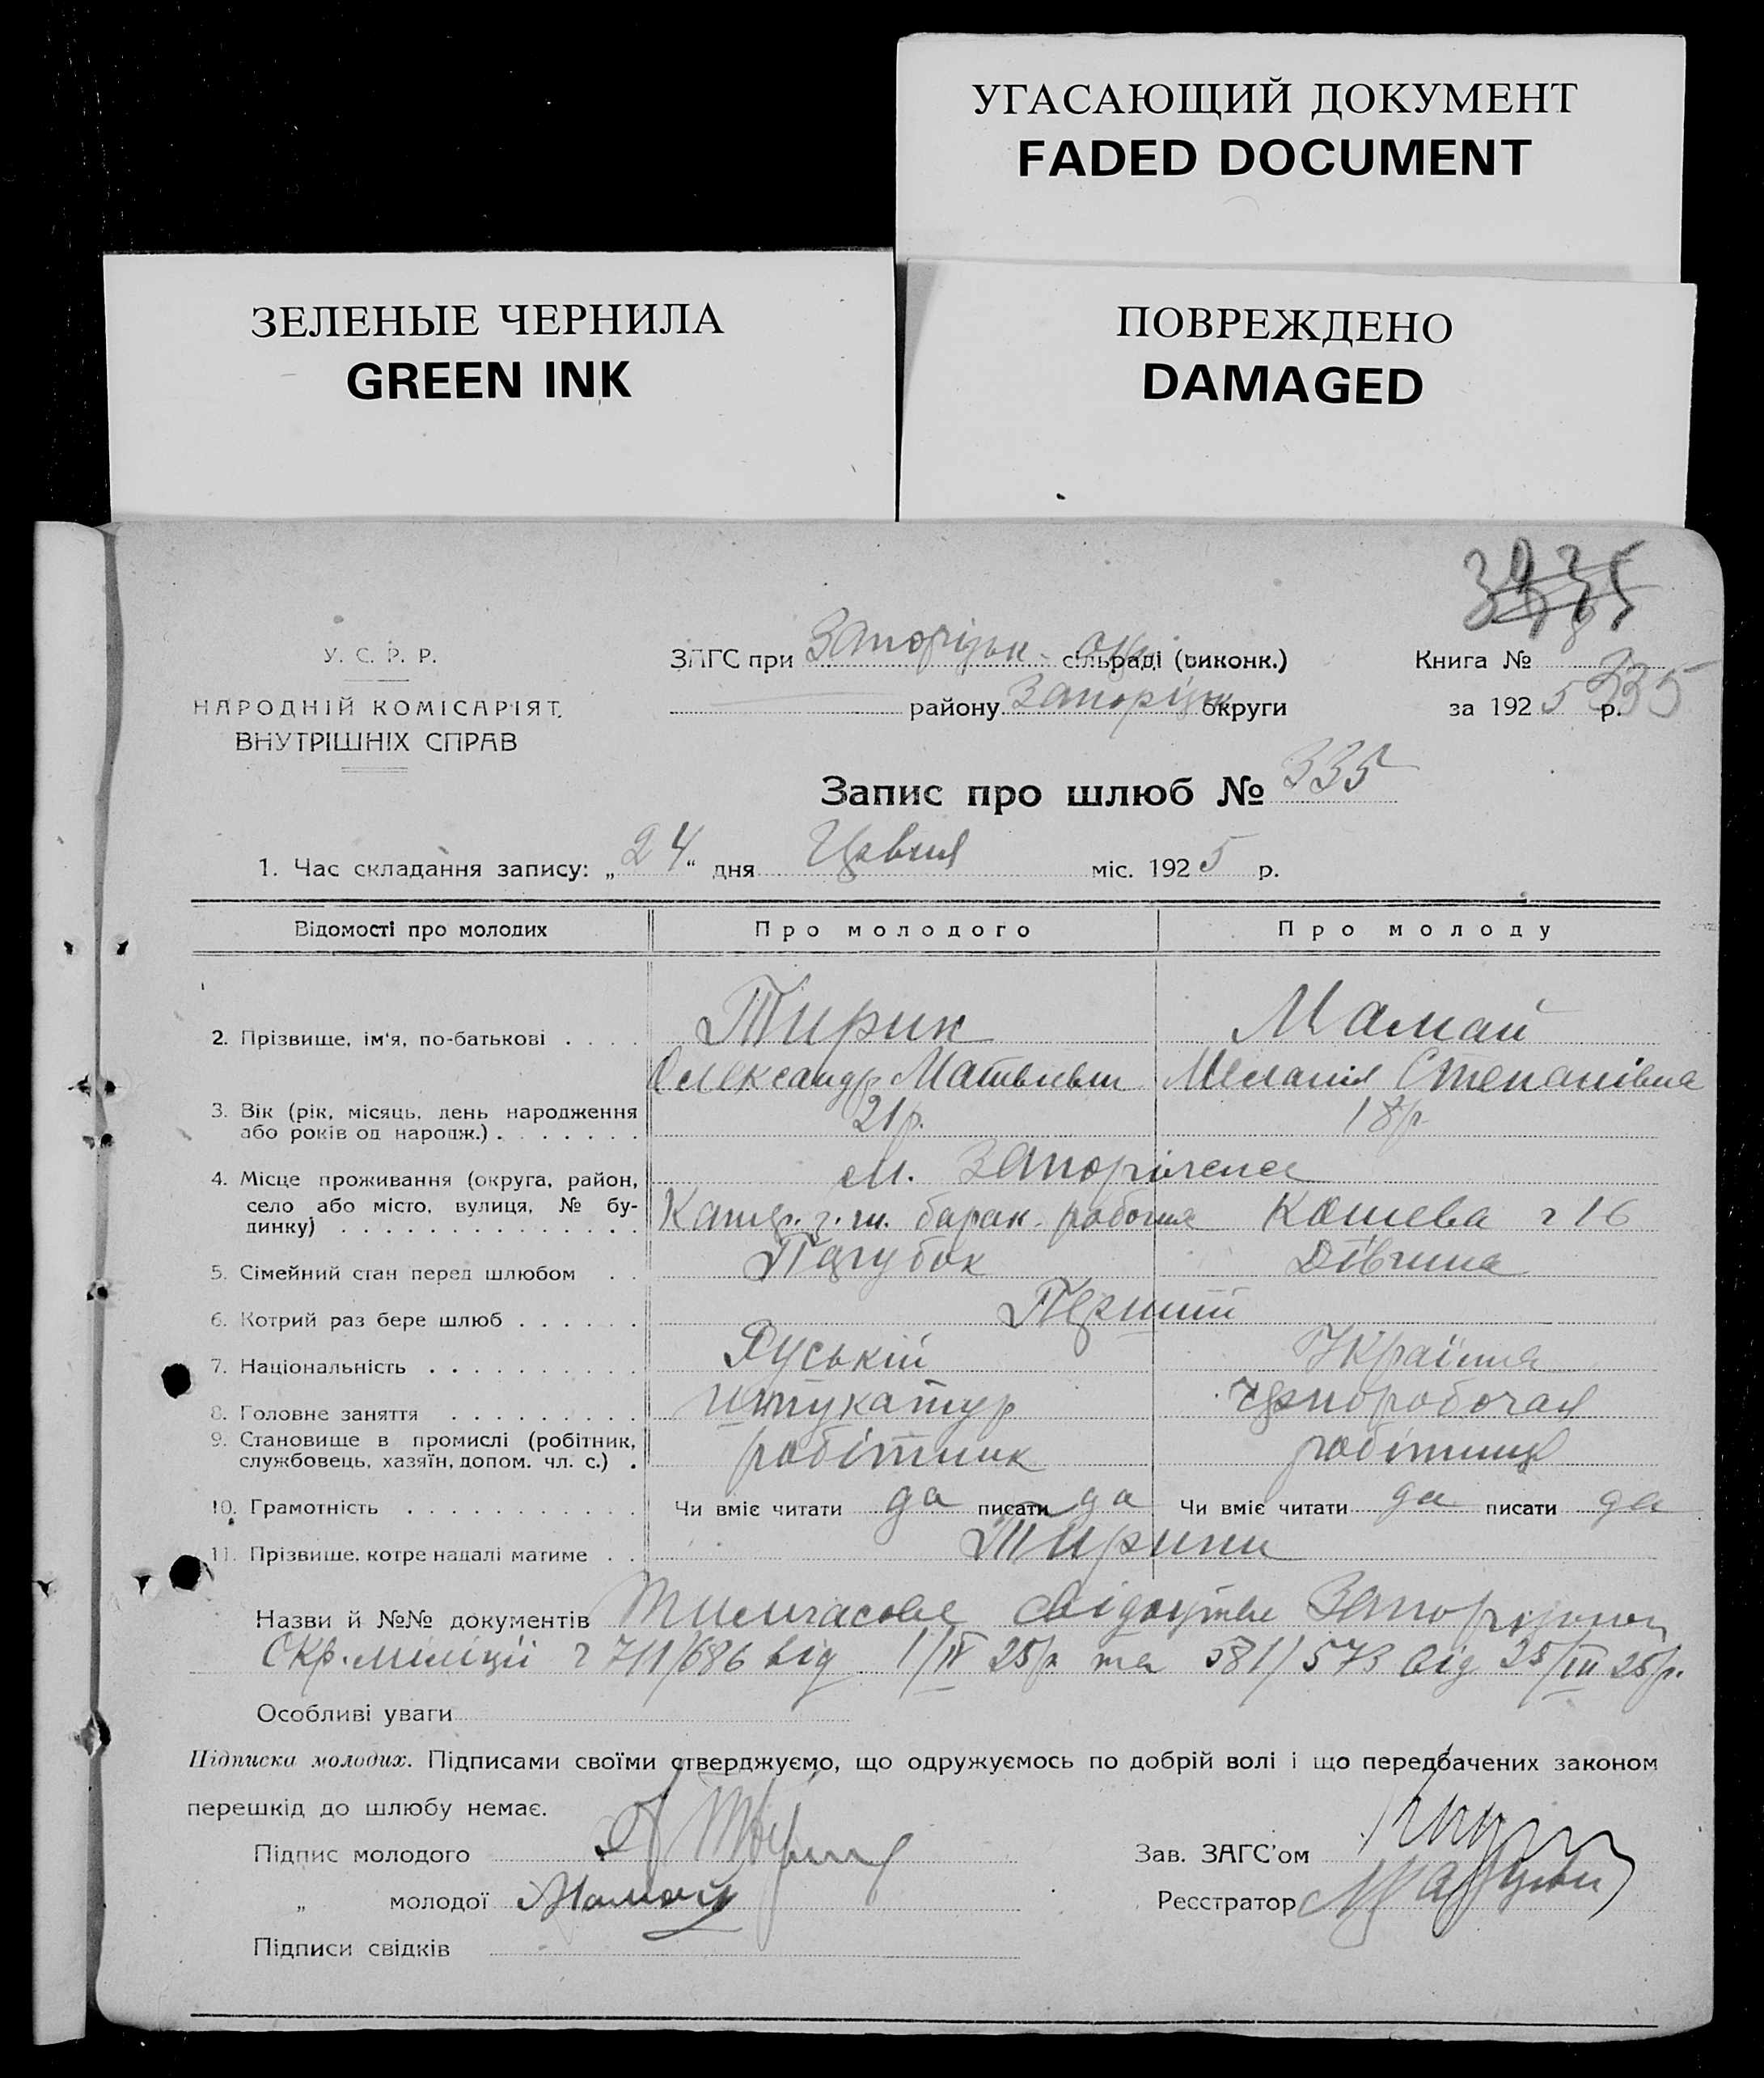 УГАСАЮЩИЙ ДОКУМЕНТ
FADED DOCUMENT
ЗЕЛЕНЫЕ ЧЕРНИЛА
GREEN INK
ПОВРЕЖДЕНО
DAMAGED
У. С. Р. Р.
НАРОДНІЙ КОМІСАРІЯТ
ВНУТРІШНІХ СПРАВ
ЗАГС при Запорізьк. Окр. сільраді (виконк.)
Книга № 8
району Запоріж округи
за 1925 р. 335
Запис про шлюб № 335
1. Час складання запису: „24“ дня Червня міс. 1925 р.
Відомості про молодих Про молодого Про молоду
2. Прізвище, ім'я, по-батькові . . . . Тирин Мамай
Олександр Матвієвич Меланія Степанівна
3. Вік (рік, місяць, день народження або років од народж.) . . . . . . . 21р. 18р.
4. Місце проживання (округа, район, село або місто, вулиця, № будинку) . . . . . . . . . . . м. Запоріжжа
барак. Кошева 16
5. Сімейний стан перед шлюбом . . Парубок Дівчина
6. Котрий раз бере шлюб . . . . . . Перший
7. Національність . . . . . . . . . . Руський Україння
8. Головне заняття . . . . . . . . . штукатур чернорабочая
9. Становище в промислі (робітник, службовець, хазяїн, допом. чл. с.) . робітник робітниця
10. Грамотність . . . . . . . . . . . Чи вміє читати да писати да Чи вміє читати да писати да
11. Прізвище, котре надалі матиме . . Тирини
Назви й №№ документів Тимчасове свідоцтво
Окр. міліції 711/686 від 1/IV 25р. та 581/573 від 25/III 25р.
Особливі уваги
Підписка молодих. Підписами своїми стверджуємо, що одружуємось по добрій волі і що передбачених законом
перешкід до шлюбу немає.
Підпис молодого А Тирин
Зав. ЗАГС'ом
„ молодої Мамай
Реєстратор
Підписи свідків